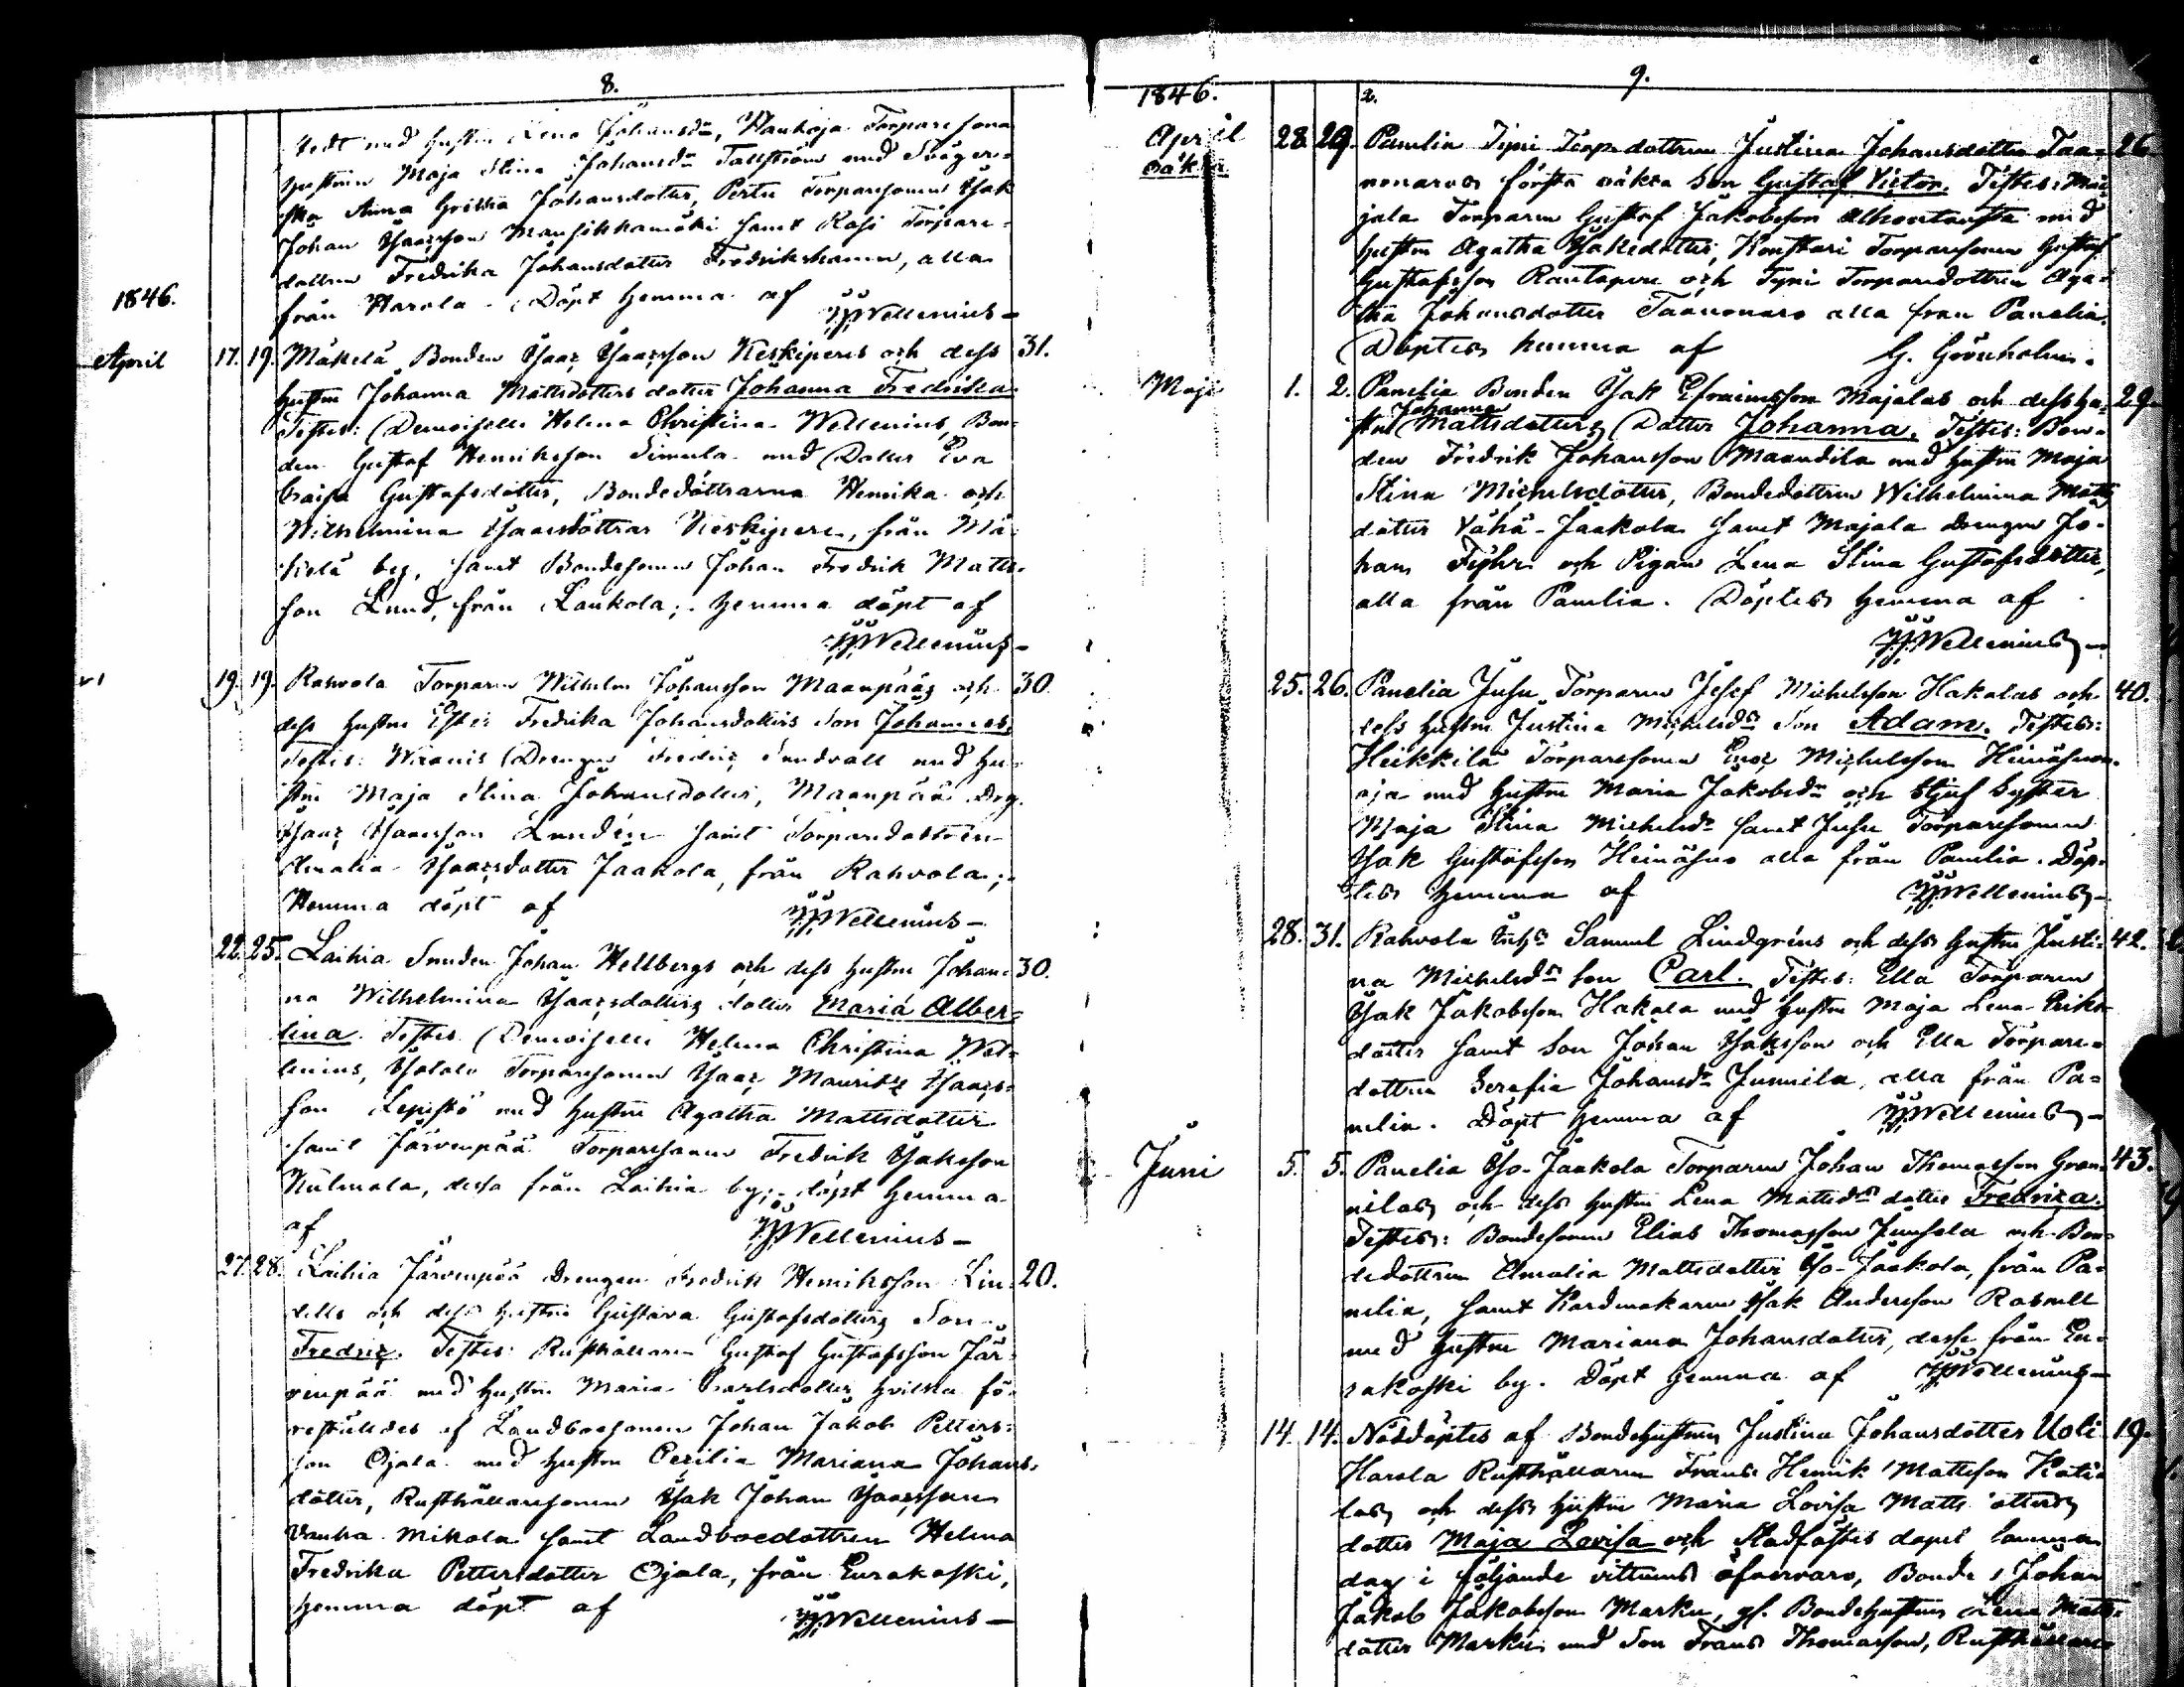 8.
tedt med hustrun Lena Johansdr, Haukoja Torpare sona
hustrun Maja Stina Johansdr Tallström med Sväger-
skan Anna Grissia Johansdotter, Perttu Torparesonen Isak
Johan Isaacsson Mansikkamäki samt Kasi Torpare-
dottren Fredrika Johansdotter Fredrikshamn, alla
1846.
från Harola. Döpt hemma af
Wellenius
April 17. 19. Mäkelä Bonden Isaac Isaacsson Keskiperes och dess 31.
hustru Johanna Mattsdotters dotter Johanna Fredrika
Testes: Demoiselle Helena Christina Wellenius, Bon-
den Gustaf Henriksson Simula med Dotter Eva
Caisa Gustafsdotter, Bondedöttrarna Henrika och
Wilhelmina Isaacsdöttrar Keskipere, från Mä-
kelä by, samt Bondesonen Johan Fredrik Matts-
son Lund, från Laukola; hemma döpt af
Wellenius
19. 19. Rahvola Torparen Wilhelm Johansson Maanpääs och 30.
dess hustru Ester Fredrika Johansdotters Son Johannes,
Testes: Drengen Fredric Sundvall med hu-
stru Maja Stina Johansdotter, Maanpää Drg.
Isaac Isaacsson Lundén samt Torparedottren
Amalia Isaacsdotter Jaakola, från Rahvola;
Hemma döpt af
Wellenius
22. 25. Laihia Smeden Johan Hellbergs och dess hustru Johan- 30.
na Wilhelmina Isaacsdotters dotter Maria Alber-
tina. Testes Demoiselle Helena Christina Wel-
lenius, Torparesonen Isaac Mauritz Isaacs-
son Lepistö med hustru Agatha Mattsdotter
samt Järvenpää Torparesonen Fredrik Isaksson
Kulmala, dessa från Laihia by; döpt hemma
af
Wellenius
27. 28. Laihia Järvenpää Drengen Fredrik Henriksson Lin- 20.
dells och dess hustru Gustava Gustafsdotters Son
Fredric. Testes: Rusthållaren Gustaf Gustafsson Jär-
venpää med hustru Maria Carlsdotter hvilka fö-
reställdes af Landboesonen Johan Jakob Petters-
son Ojala med hustru Cecilia Mariana Johans-
dotter, Rusthållaresonen Isak Johan Isaacsson
Vanha Mikola samt Landboedottren Helena
Fredrika Pettersdotter Ojala, från Eurakoski,
hemma döpt af
Wellenius
9.
1846.
April 28. 29. Panelia Typi Torpdottren Justina Johansdotter Taa- 26.
oäkta
nonaros första oäkta Son Gustaf Victor. Testes: Ma-
jala Torparen Gustaf Jakobsson med
hustru Agatha Isaksdotter, Konstari Torparesonen Gustaf
Gustafsson Rantapere och Typi Torparedottren Aga-
tha Johansdotter Taanonaro alla från Panelia.
Döptes hemma af G. Grönholm.
Maji 1. 2. Panelia Bonden Isak Efraimsson Majalas och dess hu- 29.
Johanna
stru Mattsdotters Dotter Johanna. Testes: Bon-
den Fredrik Johansson Maandila med hustru Maja
Stina Michelsdotter, Bondedottren Wilhelmina Matts
dotter Vähä-Jaakola samt Majala Drengen Jo-
han och Pigan Lena Stina Gustafsdotter,
alla från Panelia. Döptes hemma af
Wellenius
25. 26. Panelia Jusu Torparen Josef Michelsson Hakalas och 40.
dess hustru Justina Michelsdrs Son Adam. Testes:
Heikkilä Torparesonen Enoc Michelsson
oja med hustru Maria Jakobsdr och Styf Syster
Maja Stina Michelsdr samt Jusu Torparesonen
Isak Gustafsson Heinäsuo alla från Panelia. Döp-
tes hemma af Wellenius
28. 31. Rahvola Inhs Samuel Lindgréns och dess hustru Justi- 42.
na Michelsdrs Son Carl. Testes: Ella Torparen
Isak Jakobsson Hakala med hustru Maja Lena Eriks-
dotter samt Son Johan Isaksson och Ella Torpare-
dottren Serafia Johansdr Junnila, alla från Pa-
nelia. Döpt hemma af Wellenius
Juni 5. 5. Panelia Iso-Jaakola Torparen Johan Thomasson Gran- 43.
nilas och dess hustru Lena Mattsdrs dotter Fredrica.
Testes: Bondesonen Elias Thomasson Junsola och Bon-
dedottren Amalia Mattsdotter Iso-Jaakola, från Pa-
nelia, samt Kardmakaren Isak Andersson
med hustru Mariana Johansdotter, desse från Eu-
rakoski by. Döpt hemma af Wellenius
14. 14. Nöddöptes af Bondehustrun Justina Johansdotter Uoti 19.
Harola Rusthållaren Frans Henrik Mattsson Koti-
las och dess hustru Maria Lovisa Mattsdotters
dotter Maja Lovisa och Stadfästes dopet samma
dag i följande vittnens öfvervaro, Bonden Johan
Jakob Jakobsson Marku, gl. Bondehustrun Lena Matts-
dotter Marku med Son Frans Thomasson, Rusthållare-